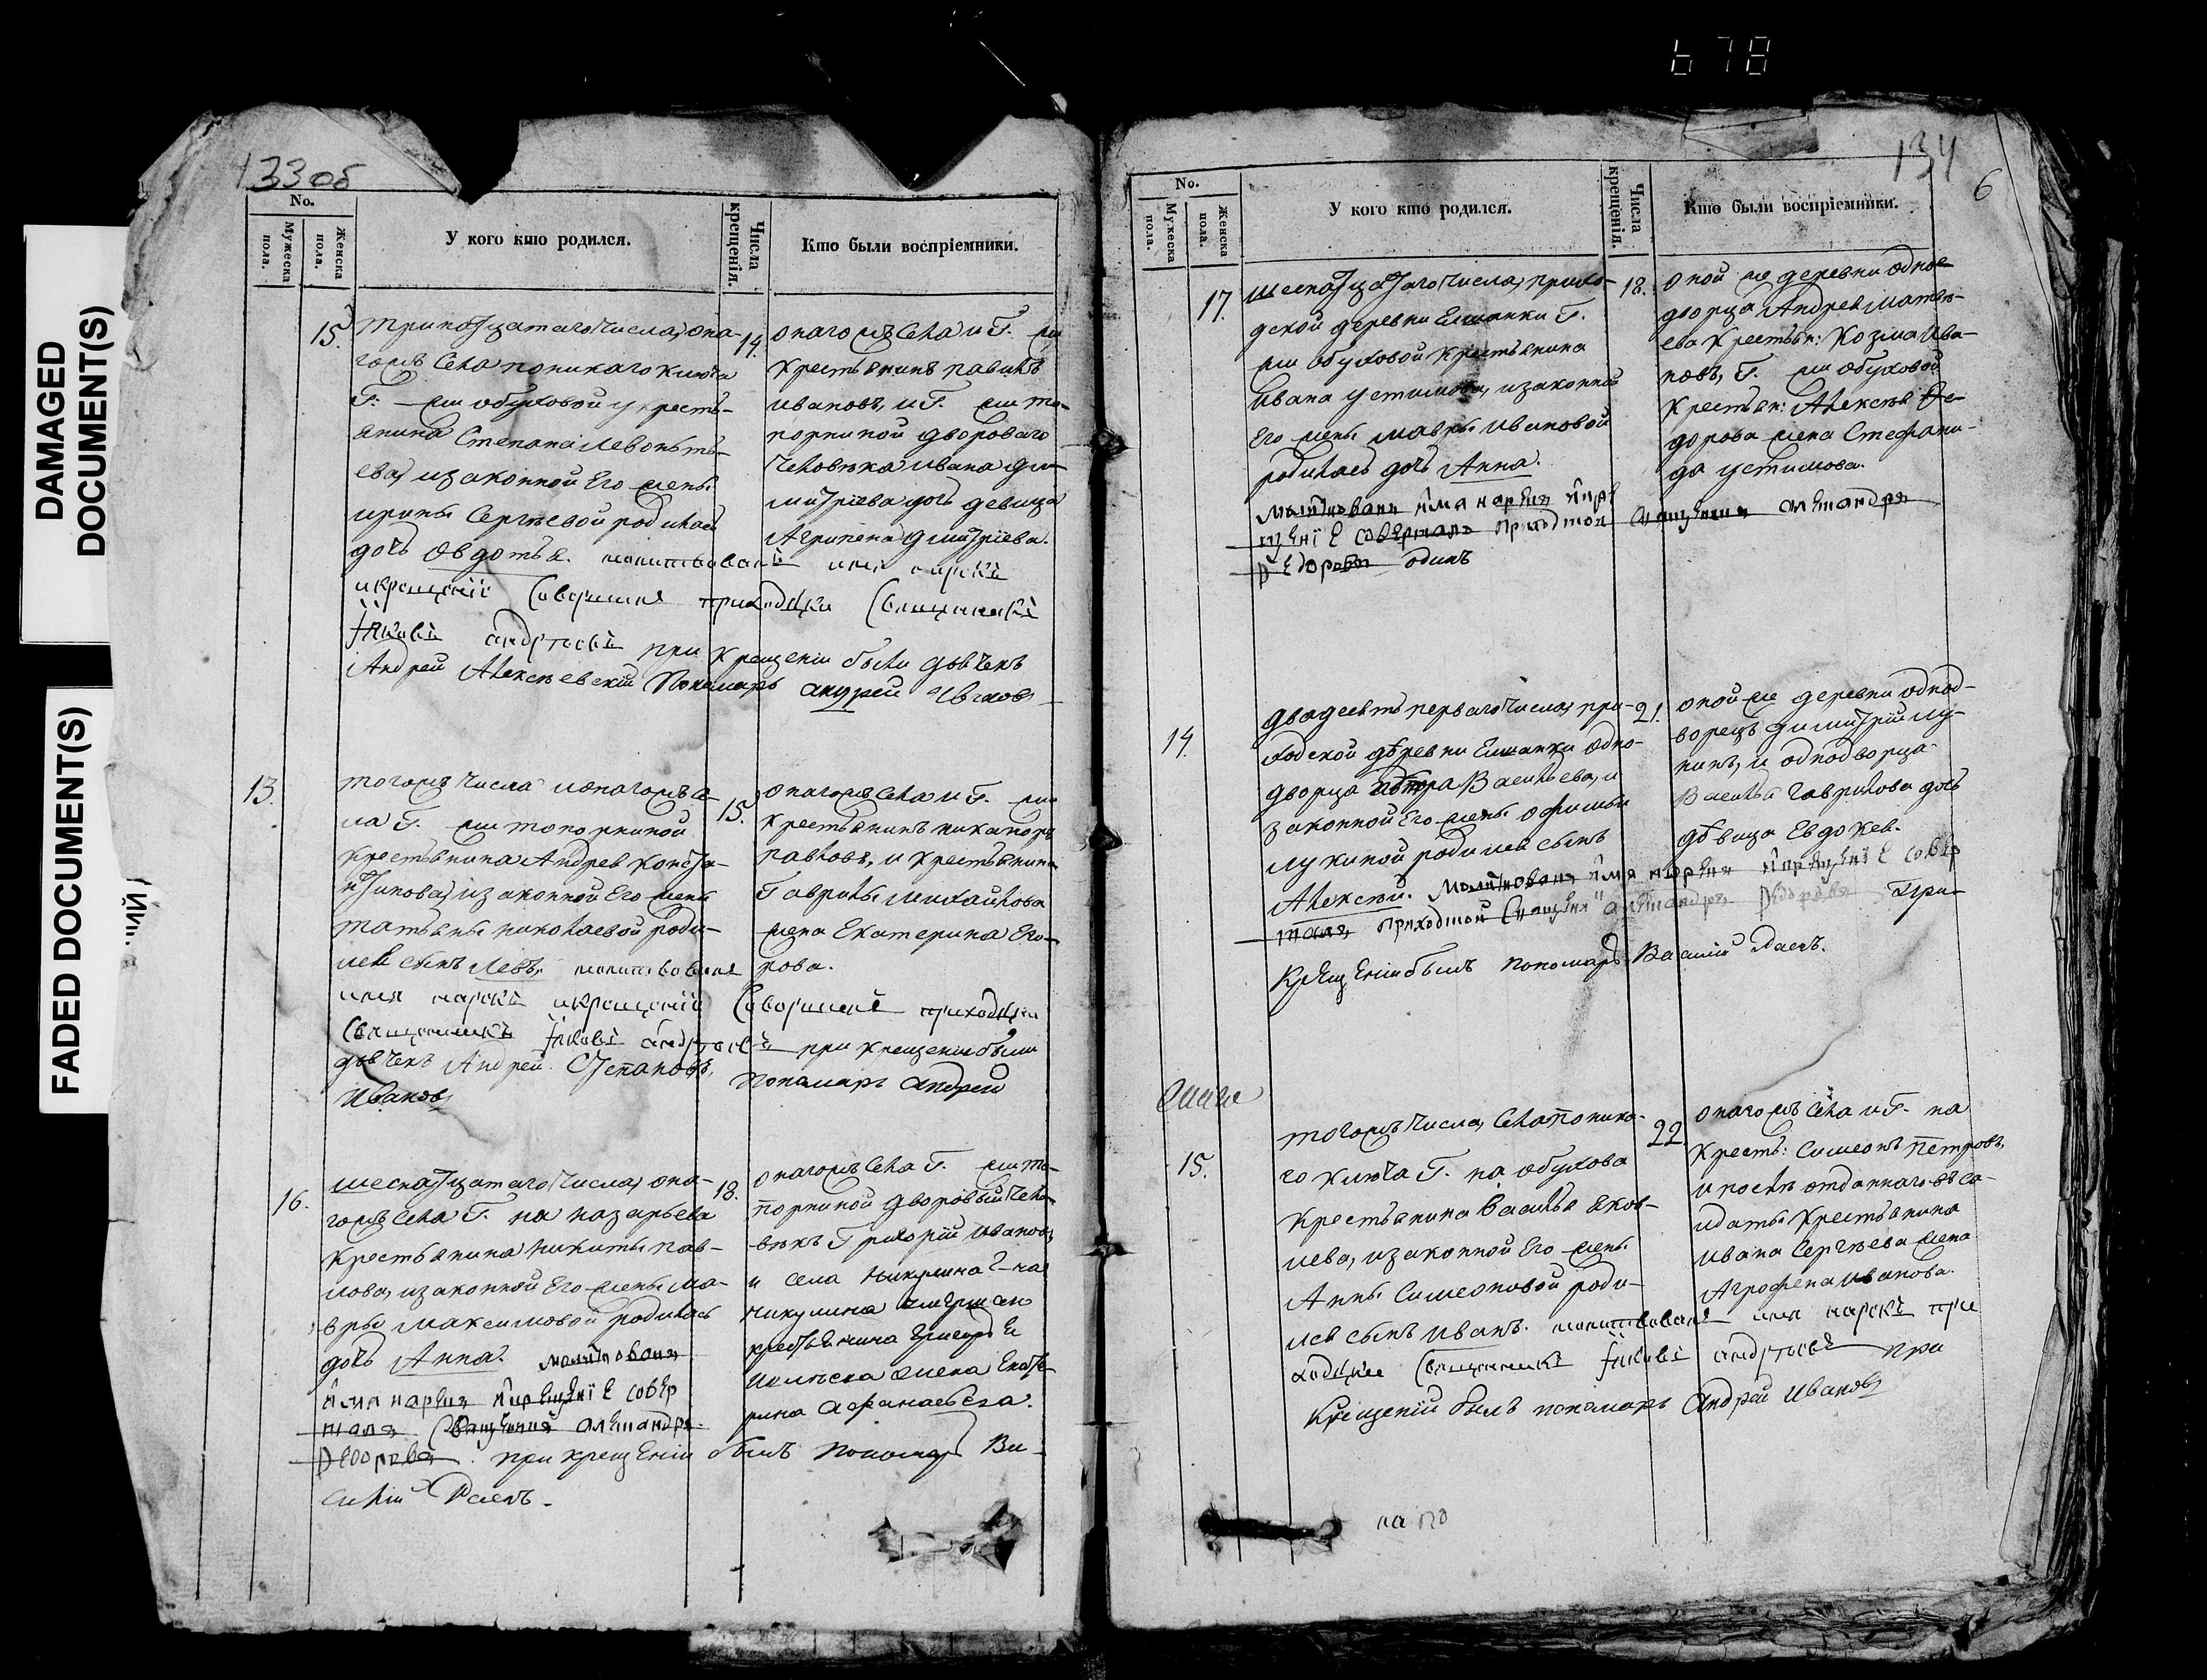 DAMAGED
DOCUMENT(S)
FADED DOCUMENT(S)
678
133 об
No.
Мужеска
пола.
Женска
пола.
У кого кто родился.
Числа
крещенія.
Кто были воспріемники.
15.
тринатцатаго числа, она-
гожъ села поникаго ключа
Г. жи обуховой у кресть-
янина Степана Левонть-
ева, изаконной Его жены
ирины Сергѣевой родилась
дочь Овдотья. молитвовалъ имя нарекъ
икрещеніе Совершилъ приходцки Священникъ
Іяковъ андреевъ при крещеніи были дьячекъ
Андрей Алексѣевскій Пономарь андрей Ивановъ
14.
онагожъ Села и Г. жи
крестьянинъ павилъ
ивановъ, и Г. жи то-
порниной двороваго
человѣка ивана ди-
митріева дочь девица
Агрипена Димитріева.
13.
тогожъ числа ионагожъ Се
ла Г. жи топорниной
крестьянина Андрея Конста-
нтинова, изаконной Его жены
татьяны николаевой роди-
лся сынъ Левъ, молитвовалъ
имя нарекъ икрещеніе Совершилъ приходцки
Священникъ Іяковъ андреевъ при крещеніи были
дьячекъ Андрей Степановъ, Пономарь андрей
Ивановъ
15.
онагожъ Села и Г. жи
крестьянинъ никаноръ
павловъ, и крестьянина
Гаврилы михайлова
жена Екатерина Его-
рова.
16.
шеснатцатаго числа, она-
гожъ села Г. на назарьева
крестьянина никиты пав-
лова, изаконной Его жены ма-
вры максимовой родилась
дочь Анна. молитвовалъ
имя нарекъ икрещеніе совер
шалъ Священникъ алеѯандръ
Ѳедоровъ. при крещеніи былъ пономарь Ва-
силій Раевъ.
18.
онагожъ села Г. жи то-
порниной дворовый чело-
вѣкъ Григорій ивановъ,
и села
никулина
крестьянина Григорья
жена Екате
рина афанасьева.
134
6
No.
Мужеска
пола.
Женска
пола.
У кого кто родился.
Числа
крещенія.
Кто были воспріемники.
17.
шеснатцатаго числа, прихо-
дской деревни Елшанки Г.
жи обуховой крестьянина
ивана устимова, изаконной
Его жены мавры ивановой
родилась дочь Анна.
молитвовалъ имя нарекъ икре
щеніе совершалъ приходской священникъ алеѯандръ
Ѳедоровъ одинъ
18.
оной же деревни одно-
дворца Андрея матве-
ева крестьян: козма ива-
новъ, Г. жи обуховой
крестьян: Алексѣя Ѳе-
дорова жена Стефани-
да устимова.
14.
двадесять перваго числа, при-
ходской деревни Елшанки одно-
дворца петра Васильева, и
законной Его жены офимьи
лукиной родился сынъ
Алексѣй. молитвовалъ имя нарекъ икрещеніе совер
шалъ приходской Священникъ алеѯандръ Ѳедоровъ При
крещеніи былъ пономарь Василій Раевъ.
21.
оной же деревни однод-
ворецъ Димитрій лу-
кинъ, и однодворца
Василья Гаврилова дочь
дѣвица Евдокея.
15.
тогожъ числа, Села понико-
го ключа Г. на обухова
крестьянина Василья яков-
лева, изаконной Его жены
Анны Симеоновой роди-
лся сынъ иванъ. молитвовалъ имя нарекъ при
ходцкие Священникъ Іяковъ андреевъ при
Крещеніи былъ пономарь андрей Ивановъ
22.
онагожъ Села и Г. на
кресть: Симеонъ Петровъ,
и послѣ отданнаго въ со-
лдаты крестьянина
ивана Сергѣева жена
Агрофена иванова.